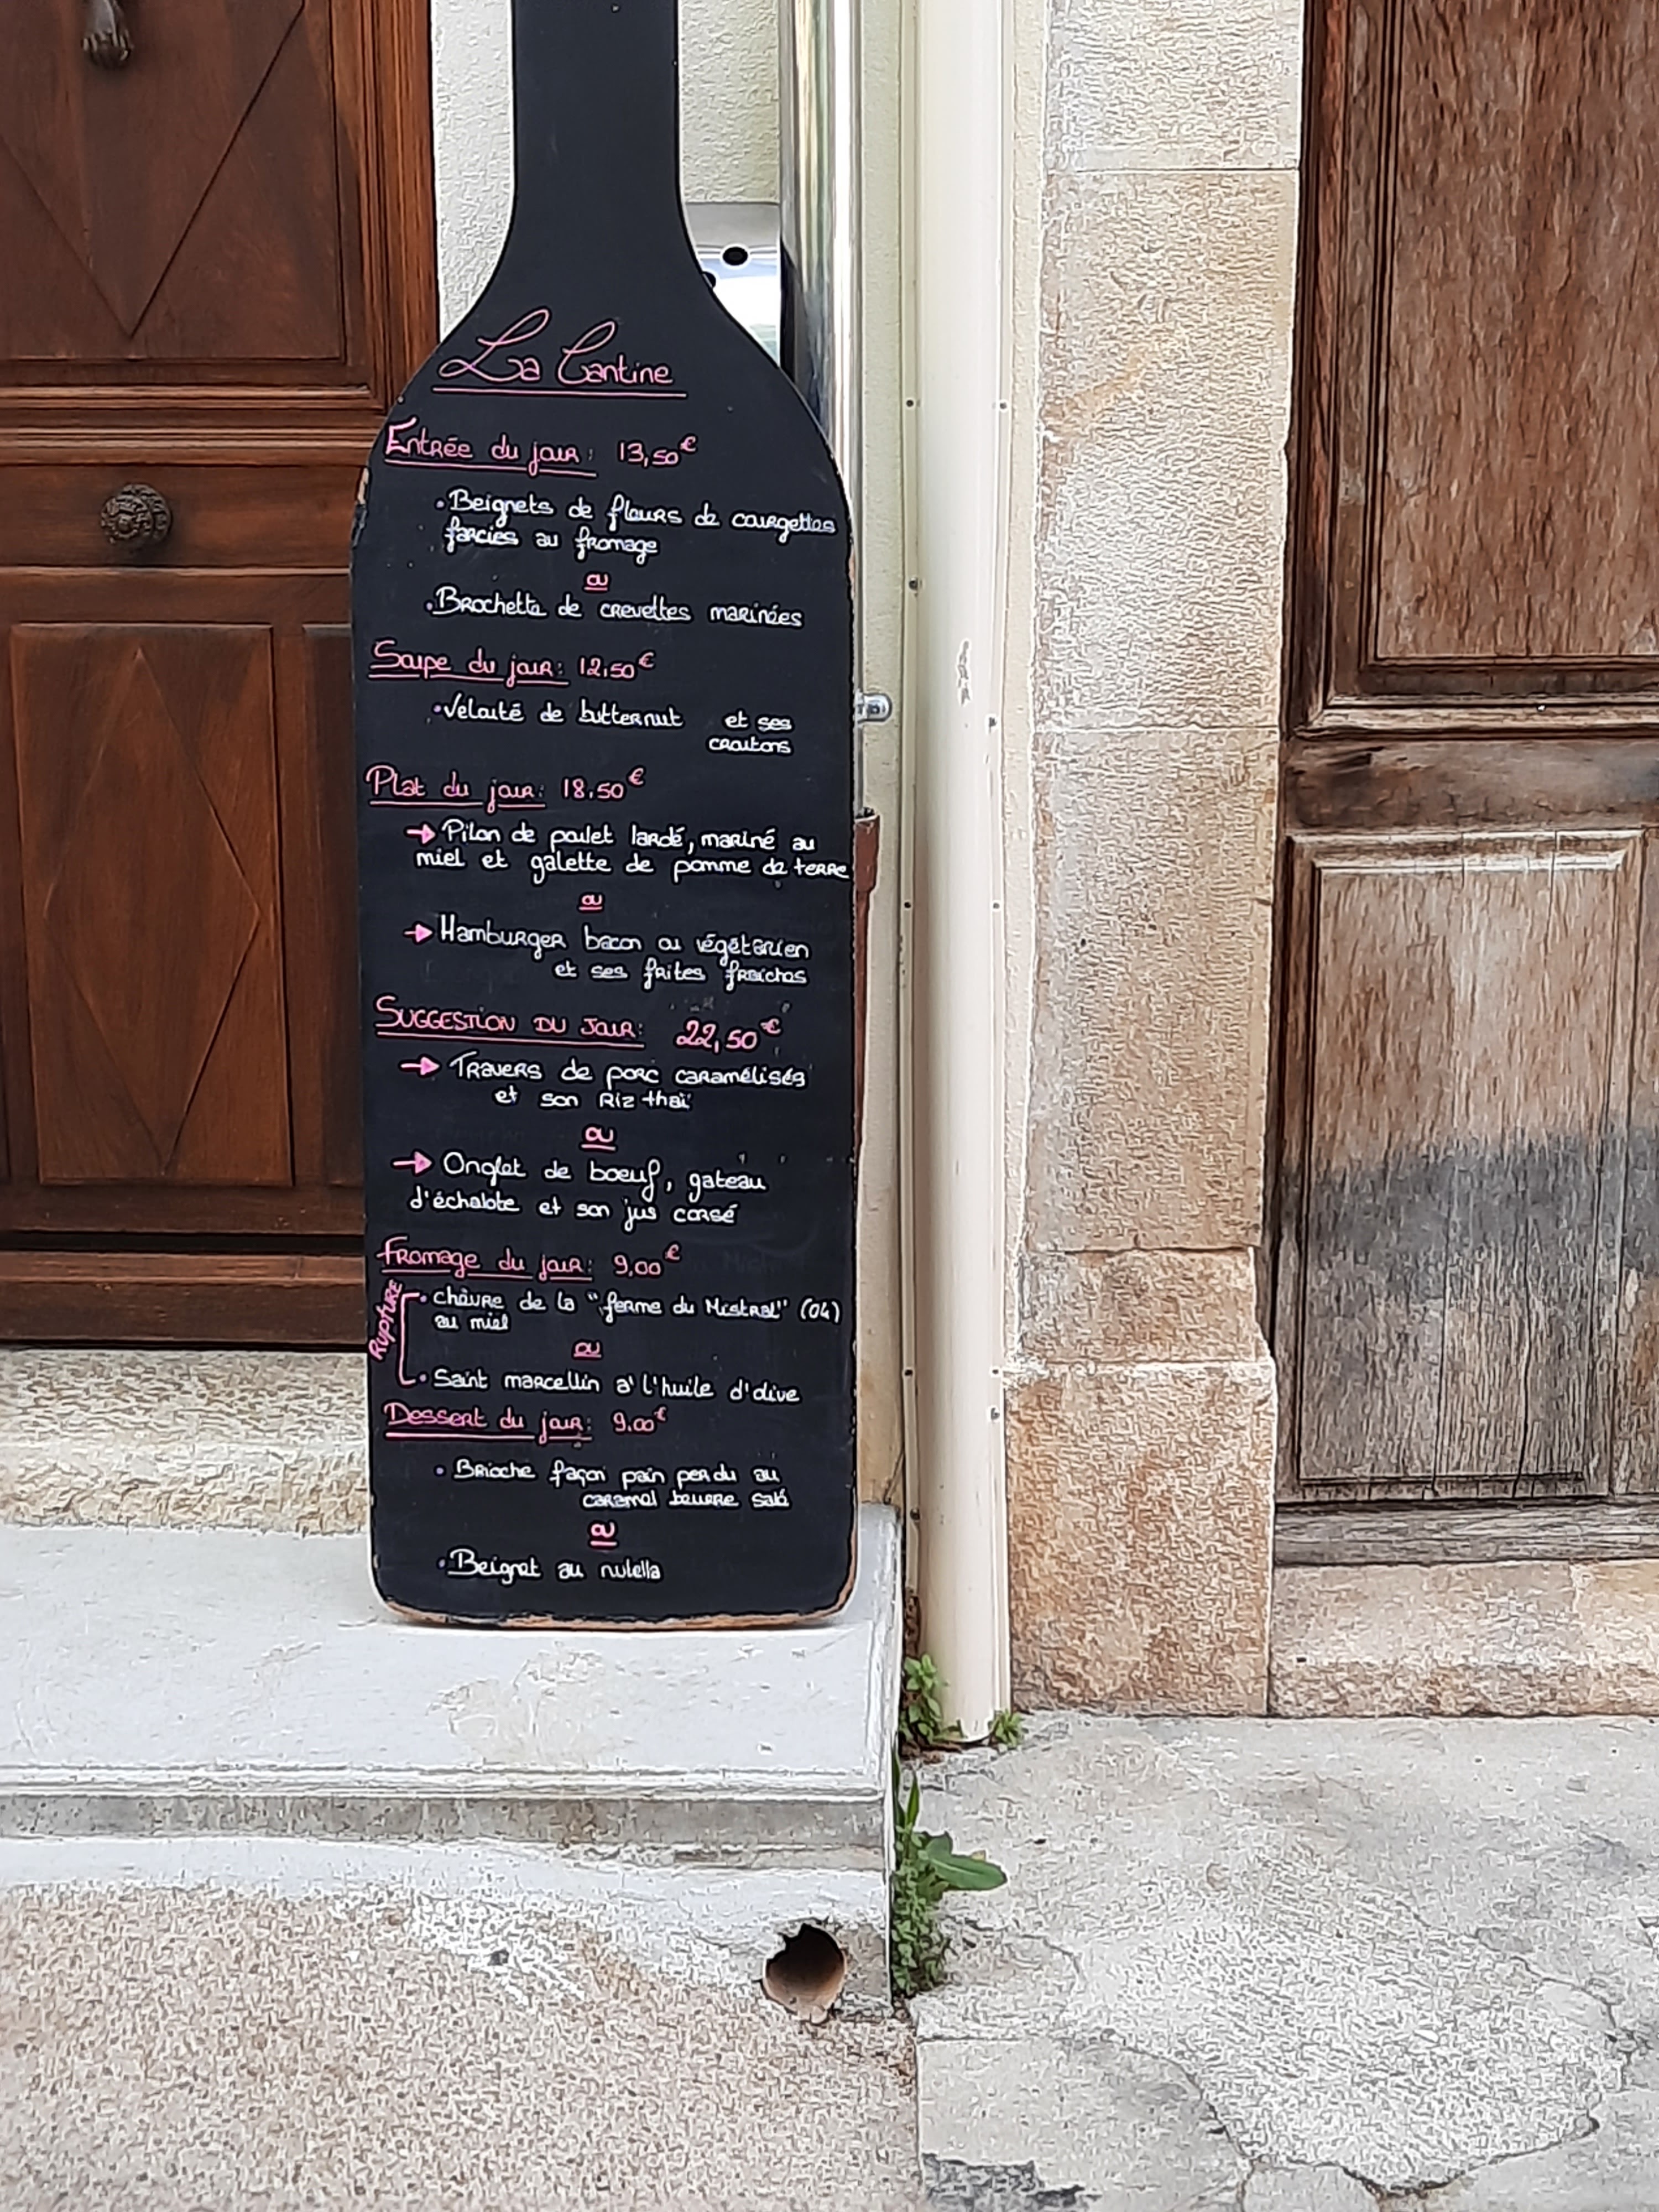 La Cantine
Entrée du jour : 13,50€
• Beignets de fleurs de courgettes
farcies au fromage
ou
• Brochette de crevettes marinées
Soupe du jour : 12.50€
• Velouté de butternut et ses
croutons
Plat du jour : 18.50€
→ Pilon de poulet lardé, mariné au
miel et galette de pomme de terre
ou
→ Hamburger bacon ou végétarien
et ses frites fraîches
SUGGESTION DU JOUR : 22,50€
→ Travers de porc caramélisés
et son Riz thaï
ou
→ Onglet de boeuf, gateau
d'échalote et son jus corsé
Fromage du jour : 9,00€
RUPTURE
• chèvre de la "ferme du Mistral" (04)
au miel
ou
• Saint marcellin a' l'huile d'olive
Dessert du jour : 9.00€
• Brioche façon pain perdu au
caramel beurre salé
ou
• Beignet au nutella